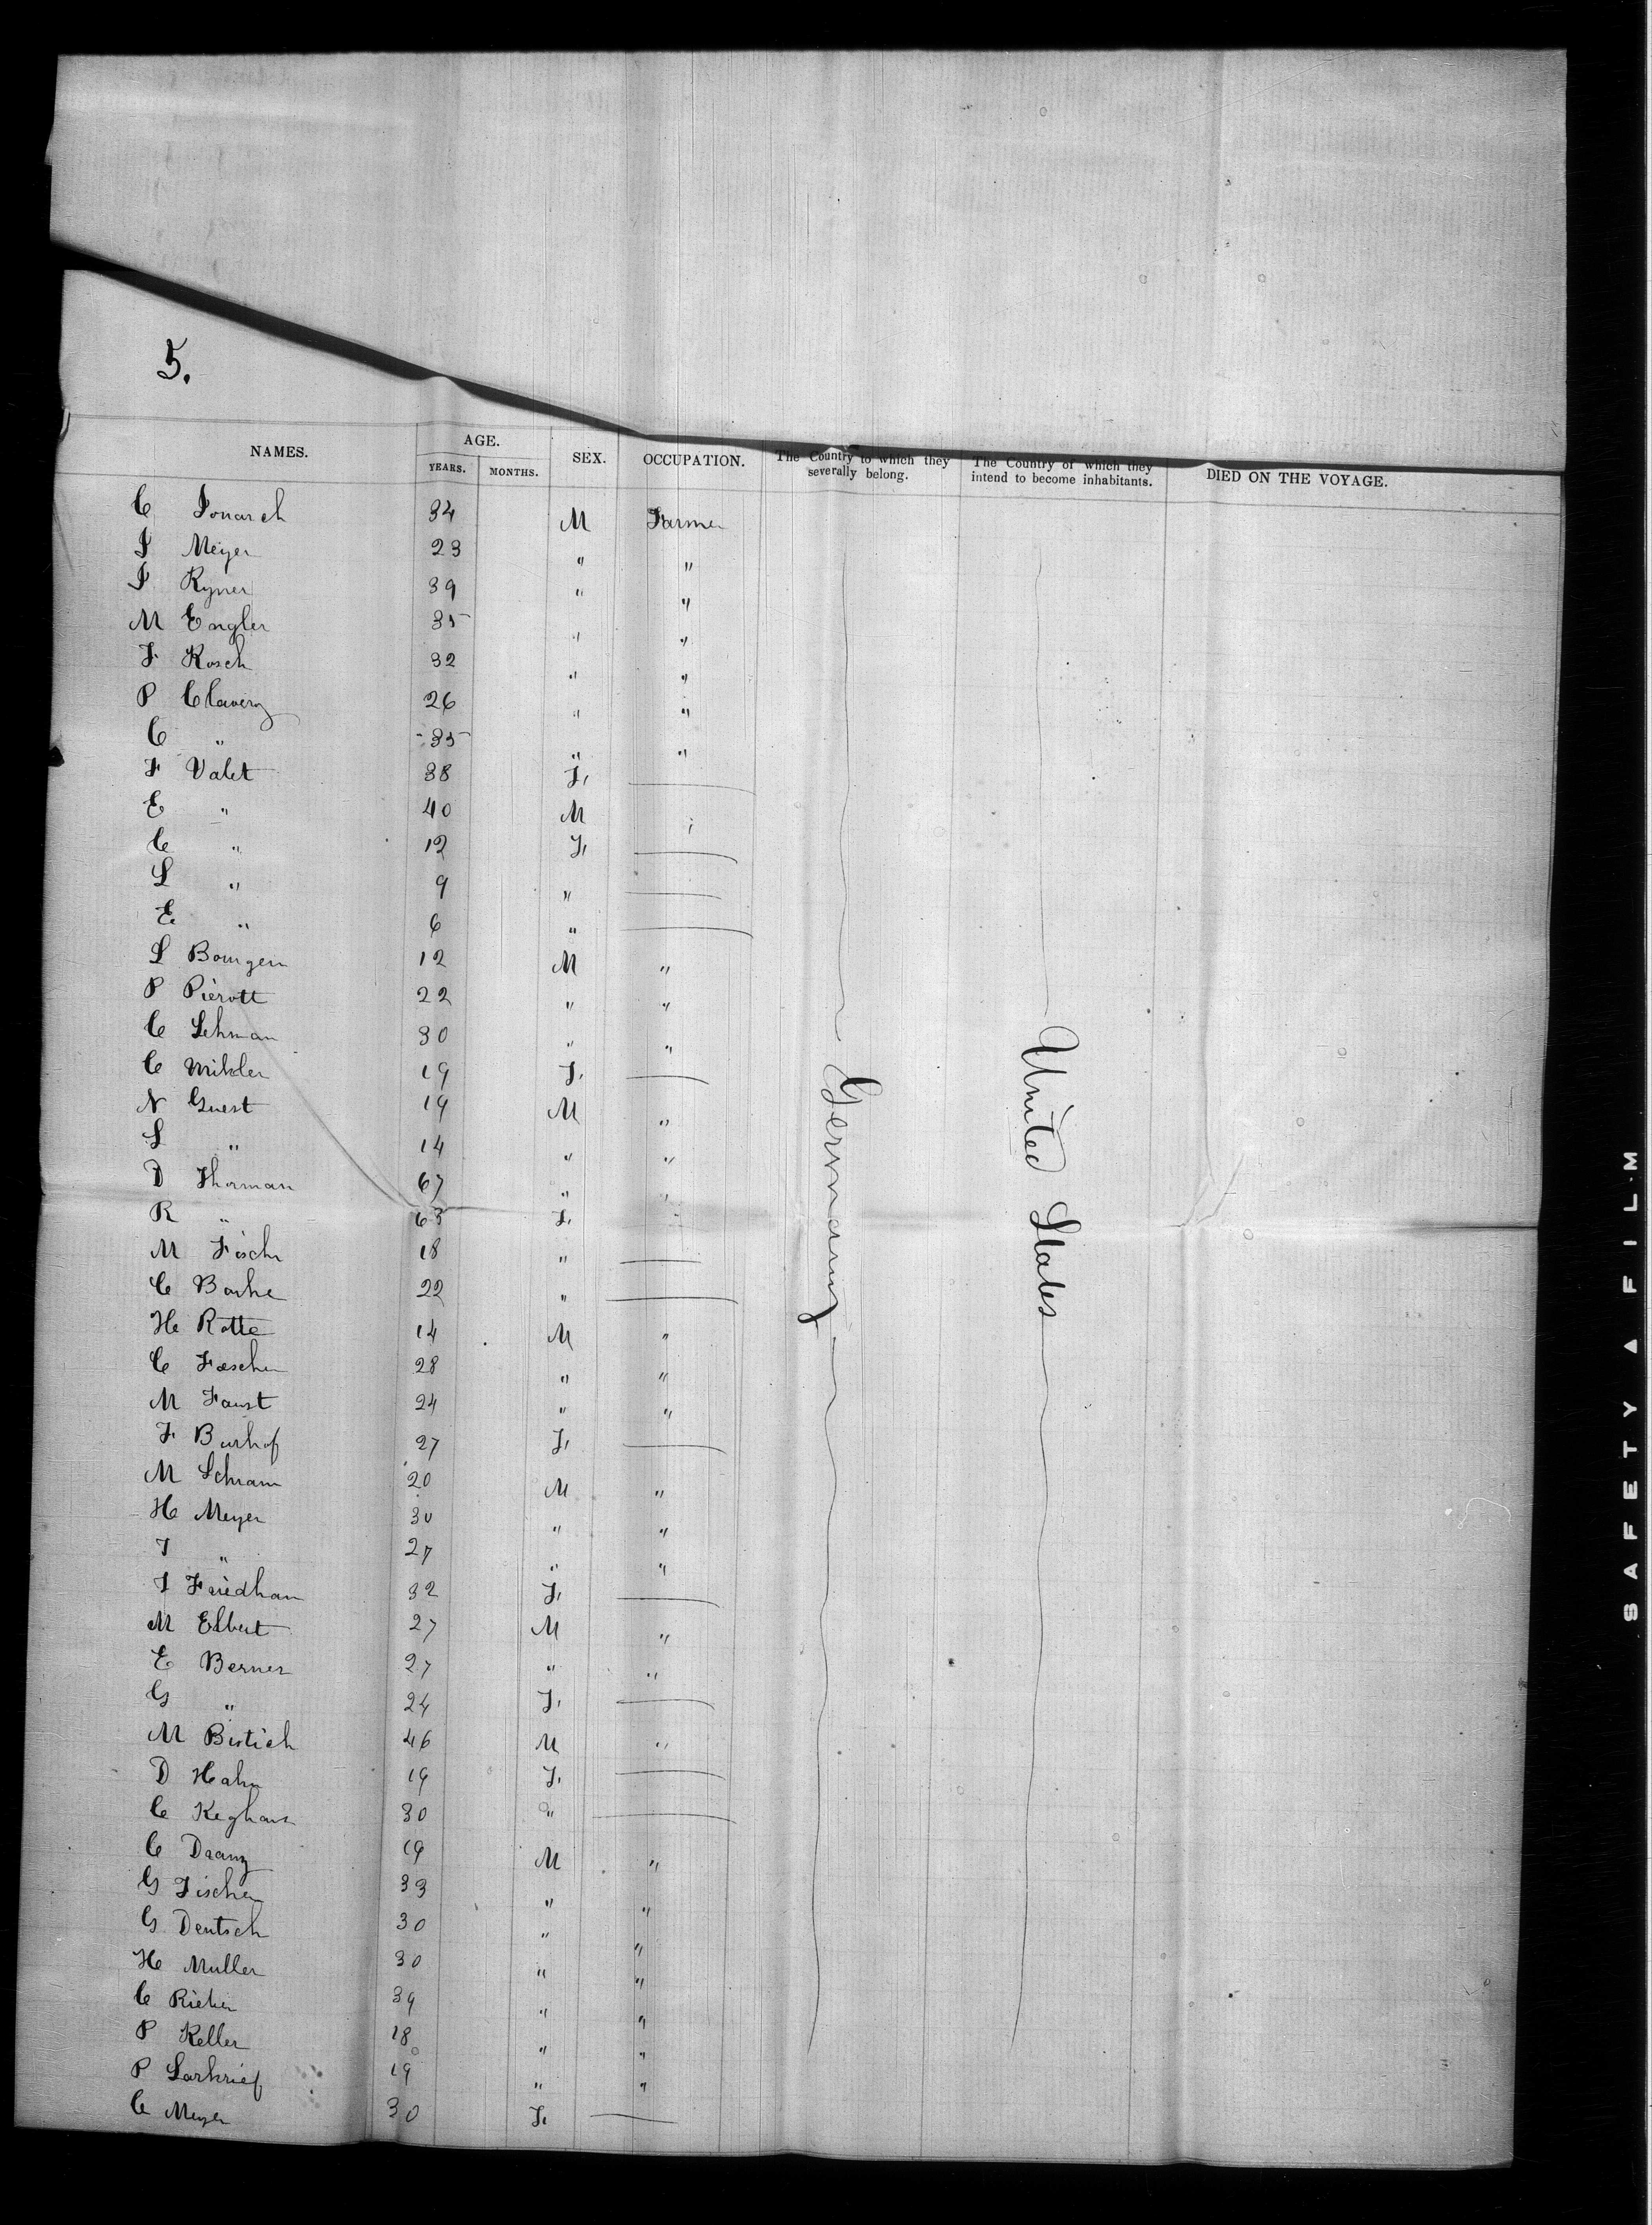 5.
NAMES. AGE. SEX. OCCUPATION. The Country to which they severally belong. The Country of which they intend to become inhabitants. DIED ON THE VOYAGE.
YEARS. MONTHS.
C 34 M Farmer
J Meyer 23 " "
J Ryner 39 " "
M Engler 35 " "
F Kosch 32 " "
P Claverz 26 " "
C " 35 " "
F Valet 38 F,
E " 40 M "
C " 12 F,
L " 9 "
E " 6 "
L Bourgen 12 M "
P Pierott 22 " "
C Lehman 30 " "
C Mikler 19 F,
N Guest 19 M "
L " 14 " "
D Thorman 67 " "
R " 63 F,
M Fischr 18 "
C Barke 22 "
H Rotte 14 M "
C Faschen 28 " "
M Faust 24 " "
F Burhof 27 F,
M Schram 20 M "
H Meyer 30 " "
T " 27 " "
J Friedham 32 F,
M Elbert 27 M "
E Berner 27 " "
G " 24 F,
M Bistich 46 M "
D Hahn 19 F,
C Keghaus 30 "
C Draanz 19 M "
G Fischer 33 " "
G Deutsch 30 " "
H Muller 30 " "
C Rieker 39 " "
P Keller 18 " "
P Larkrief 19 " "
C Meyer 30 F,
Germany
United States
SAFETY ▲ FILM